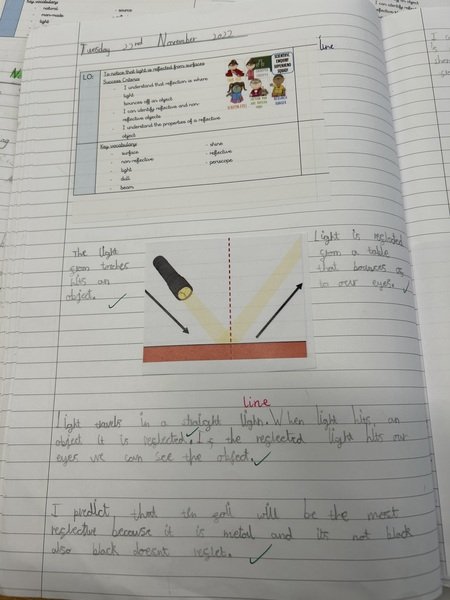 Key vocabulary
natural
man-made
light
source
Tuesday 22nd November 2022
line
LO:
To notice that light is reflected from surfaces
Success Criteria
I understand that reflection is where
light
bounces off an object
I can identify reflective and non-
reflective objects
I understand the properties of a reflective
object
SCIENTIFIC
ENQUIRY
SUPERHERO
SQUAD
Key vocabulary
surface
non-reflective
light
dull
beam
shine
reflective
periscope
The light
from torches
hits an
object.
Light is reglected
from a table
that bounces og
to our eyes.
line
Light travels in a straight lighn. When light hits an
object it is reglected. Is the reglected light hits our
eyes we can see the object.
I predict that the will be the most
reglective because it is metal and its not black
also black doesnt reglet.